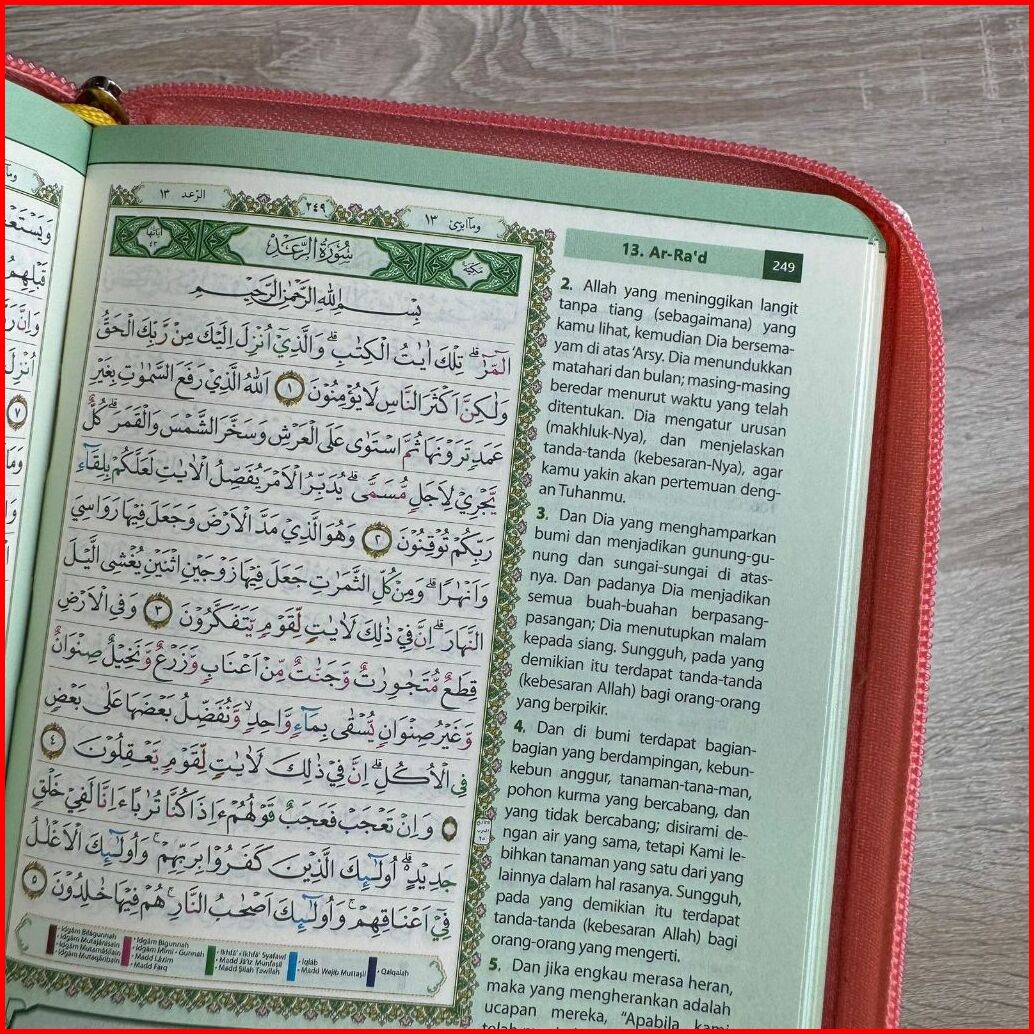 الرعد ١٣
٢٤٩
وماابرئ ١٣
اٰيَاتُهَا ٤٣
سُوْرَةُ الرَّعْدِ
مَكِّيَّةٌ
بِسْمِ اللّٰهِ الرَّحْمٰنِ الرَّحِيْمِ
الۤمّۤرٰۗ تِلْكَ اٰيٰتُ الْكِتٰبِۗ وَالَّذِيْٓ اُنْزِلَ اِلَيْكَ مِنْ رَّبِّكَ الْحَقُّ
وَلٰكِنَّ اَكْثَرَ النَّاسِ لَا يُؤْمِنُوْنَ ١ اَللّٰهُ الَّذِيْ رَفَعَ السَّمٰوٰتِ بِغَيْرِ
عَمَدٍ تَرَوْنَهَا ثُمَّ اسْتَوٰى عَلَى الْعَرْشِ وَسَخَّرَ الشَّمْسَ وَالْقَمَرَۗ كُلٌّ
يَّجْرِيْ لِاَجَلٍ مُّسَمًّىۗ يُدَبِّرُ الْاَمْرَ يُفَصِّلُ الْاٰيٰتِ لَعَلَّكُمْ بِلِقَاۤءِ
رَبِّكُمْ تُوْقِنُوْنَ ٢ وَهُوَ الَّذِيْ مَدَّ الْاَرْضَ وَجَعَلَ فِيْهَا رَوَاسِيَ
وَاَنْهٰرًاۗ وَمِنْ كُلِّ الثَّمَرٰتِ جَعَلَ فِيْهَا زَوْجَيْنِ اثْنَيْنِ يُغْشِى الَّيْلَ
النَّهَارَۗ اِنَّ فِيْ ذٰلِكَ لَاٰيٰتٍ لِّقَوْمٍ يَّتَفَكَّرُوْنَ ٣ وَفِى الْاَرْضِ
قِطَعٌ مُّتَجٰوِرٰتٌ وَّجَنّٰتٌ مِّنْ اَعْنَابٍ وَّزَرْعٌ وَّنَخِيْلٌ صِنْوَانٌ
وَّغَيْرُ صِنْوَانٍ يُّسْقٰى بِمَاۤءٍ وَّاحِدٍۙ وَّنُفَضِّلُ بَعْضَهَا عَلٰى بَعْضٍ
فِى الْاُكُلِۗ اِنَّ فِيْ ذٰلِكَ لَاٰيٰتٍ لِّقَوْمٍ يَّعْقِلُوْنَ ٤
وَاِنْ تَعْجَبْ فَعَجَبٌ قَوْلُهُمْ ءَاِذَا كُنَّا تُرٰبًا ءَاِنَّا لَفِيْ خَلْقٍ
جَدِيْدٍۗ اُولٰۤىِٕكَ الَّذِيْنَ كَفَرُوْا بِرَبِّهِمْۚ وَاُولٰۤىِٕكَ الْاَغْلٰلُ
فِيْٓ اَعْنَاقِهِمْۚ وَاُولٰۤىِٕكَ اَصْحٰبُ النَّارِۚ هُمْ فِيْهَا خٰلِدُوْنَ ٥
• Idgām Bilagunnah
• Idgām Mutajānisain
• Idgām Mutamāṡilain
• Idgām Mutaqāribain
• Idgām Bigunnah
• Idgām Mīmī • Gunnah
• Madd Lāzim
• Madd Farq
• Ikhfā' • Ikhfā' Syafawī
• Madd Jā'iz Munfaṣil
• Madd Ṣilah Ṭawīlah
• Iqlāb
• Madd Wajib Muttaṣil
• Qalqalah
13. Ar-Ra'd
249
2. Allah yang meninggikan langit
tanpa tiang (sebagaimana) yang
kamu lihat, kemudian Dia bersema-
yam di atas 'Arsy. Dia menundukkan
matahari dan bulan; masing-masing
beredar menurut waktu yang telah
ditentukan. Dia mengatur urusan
(makhluk-Nya), dan menjelaskan
tanda-tanda (kebesaran-Nya), agar
kamu yakin akan pertemuan deng-
an Tuhanmu.
3. Dan Dia yang menghamparkan
bumi dan menjadikan gunung-gu-
nung dan sungai-sungai di atas-
nya. Dan padanya Dia menjadikan
semua buah-buahan berpasang-
pasangan; Dia menutupkan malam
kepada siang. Sungguh, pada yang
demikian itu terdapat tanda-tanda
(kebesaran Allah) bagi orang-orang
yang berpikir.
4. Dan di bumi terdapat bagian-
bagian yang berdampingan, kebun-
kebun anggur, tanaman-tana-man,
pohon kurma yang bercabang, dan
yang tidak bercabang; disirami de-
ngan air yang sama, tetapi Kami le-
bihkan tanaman yang satu dari yang
lainnya dalam hal rasanya. Sungguh,
pada yang demikian itu terdapat
tanda-tanda (kebesaran Allah) bagi
orang-orang yang mengerti.
5. Dan jika engkau merasa heran,
maka yang mengherankan adalah
ucapan mereka, "Apabila kami